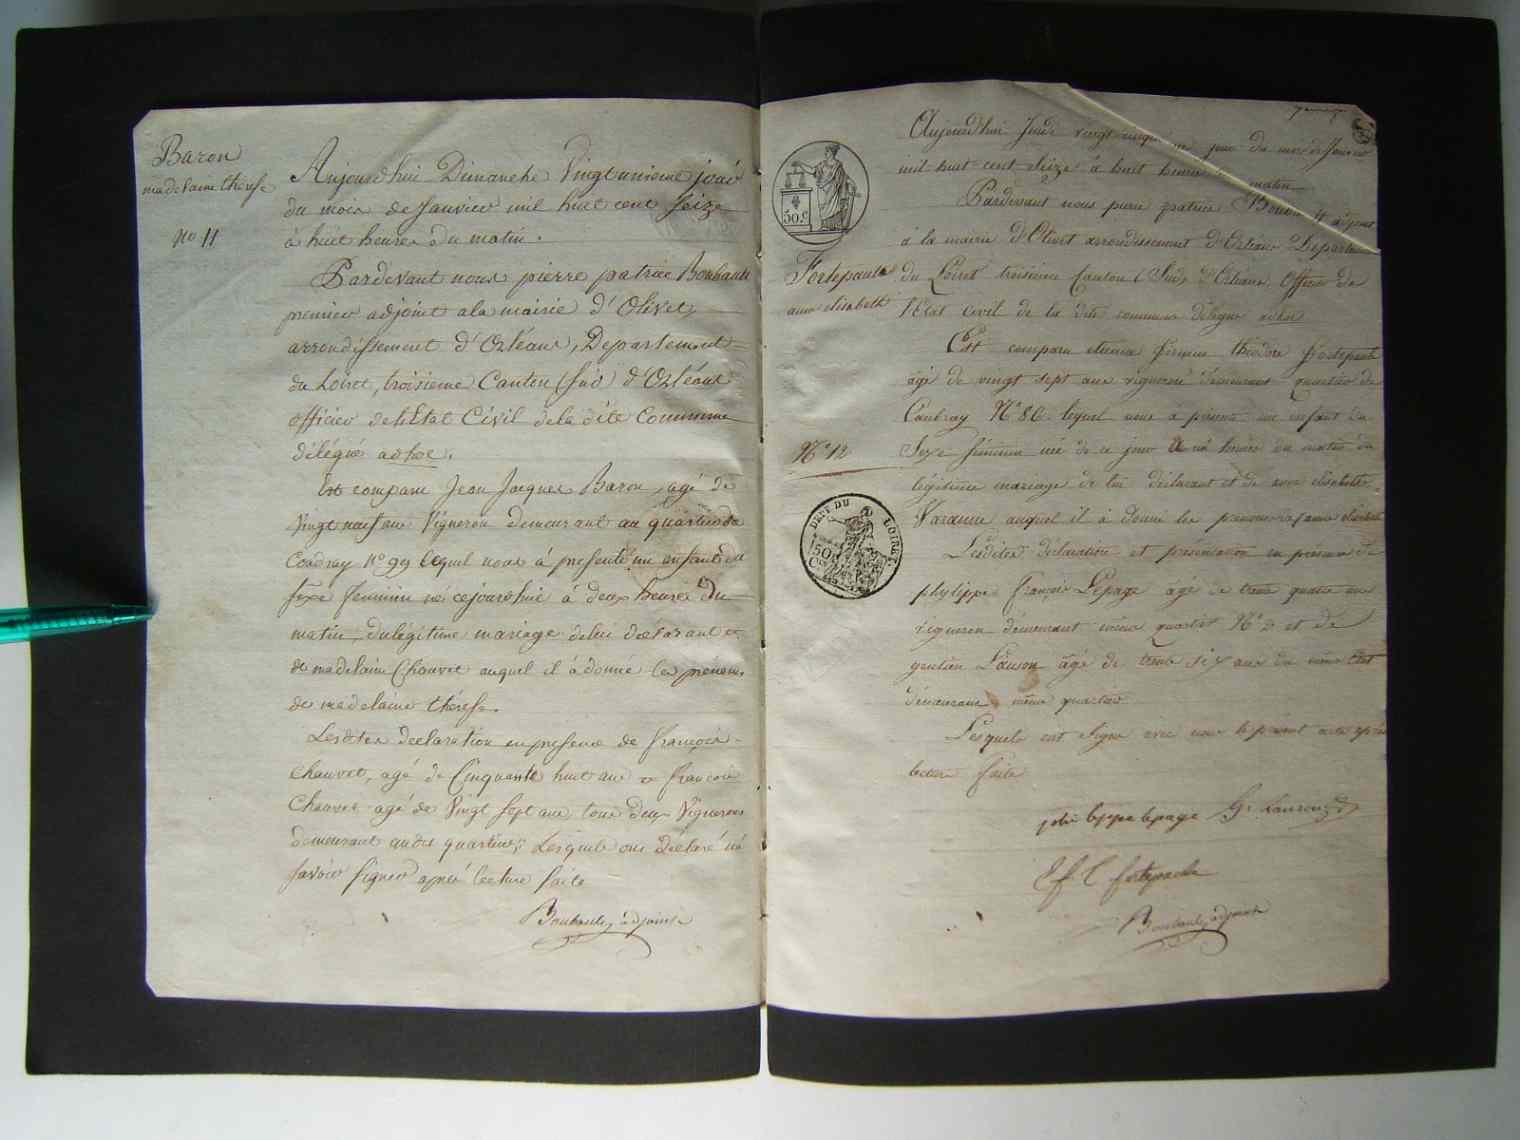 Baron
madelaine therese
No 11
Aujourd'hui Dimanche Vingt unieme jour
du mois de Janvier mil huit cent seize
à huit heures du matin.
Pardevant nous pierre patrice Boubault
premier adjoint a la mairie d'Olivet,
arrondissement d'Orléans, Departement
du Loiret, troisieme Canton (sud) d'Orléans
officier de l'Etat Civil de la dite Commune
délégué adhoc.
Est comparu Jean Jacques Baron, agé de
Vingt neuf ans Vigneron demeurant au quartier du
Coudray No 99 lequel nous à presenté un enfant du
sexe feminin né cejourdhui à deux heures du
matin, du légitime mariage de lui déclarant et
de madelaine Chauvet auquel il à donné les prénoms
de madelaine thérese.
Lesdites declaration en presence de françois
Chauvet, agé de Cinquante huit ans et francois
Chauvet agé de Vingt sept ans tous deux Vignerons
demeurant audit quartier; Lesquels ont Déclaré né
savoir signer après lecture faite
Boubault, adjoint
50.c
Fortepaule
anne elisabeth
No 12
DEPT DU LOIRET.
50
Aujourd'hui Jeudi vingt cinquieme jour du mois de Janvier
mil huit cent Seize à huit heures matin
Pardevant nous pierre patrice Boubault adjoint
à la mairie d'Olivet arrondissement d'Orleans Departement
du Loiret troisieme Canton (Sud) d'Orleans, Officier de
l'Etat Civil de la dite commune délégué adhoc
Est comparu etienne firmin théodore fortepaule
âgé de vingt sept ans vigneron demeurant quartier de
Caubray No 86 lequel nous à présenté un enfant du
Sexe féminin né de ce jour à heures du matin du
légitime mariage de lui déclarant et de anne elisabeth
Varenne auquel il à donné les prénoms anne elisabeth
Lesdites déclaration et présentation en présence de
phylippe françois Lepage âgé de trente quatre ans
vigneron demeurant même quartier No 2 et de
gentien Lauson âgé de trente six ans du même état
demeurant même quartier
Lesquels ont signé avec nous le présent acte après
lecture faite
philippe lepage G. Lauson
E f t fortepaule
Boubault, adjoint